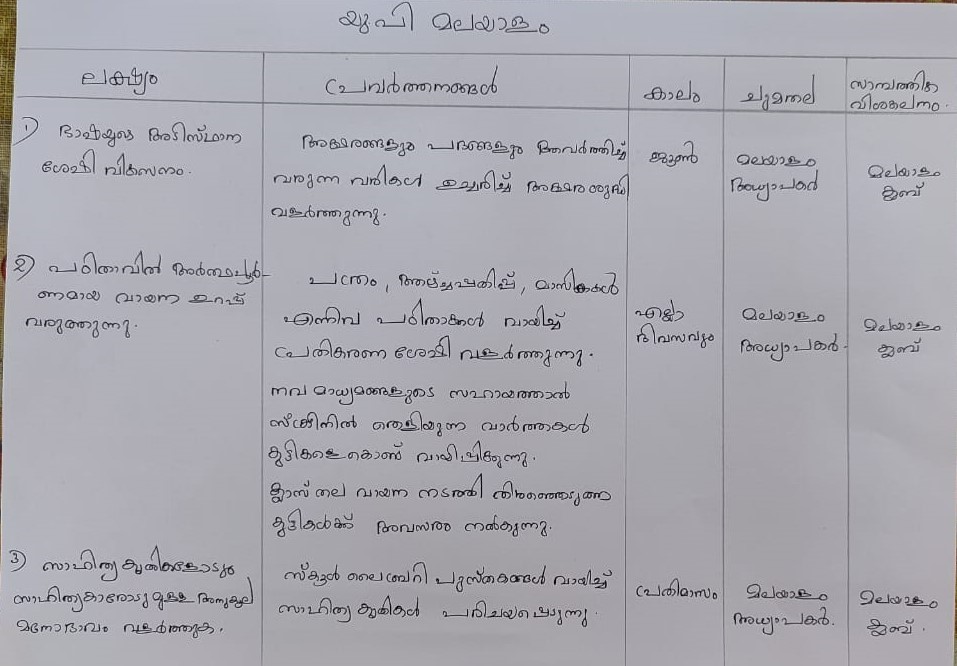 യു പി മലയാളം
ലക്ഷ്യം
പ്രവർത്തനങ്ങൾ
കാലം
ചുമതല
സാമ്പത്തിക
വിശകലനം.
1) ഭാഷയുടെ അടിസ്ഥാന
ശേഷി വികസനം.
അക്ഷരങ്ങളും പദങ്ങളും ആവർത്തിച്ച്
വരുന്ന വരികൾ ഉച്ചരിച്ച് അക്ഷര ശുദ്ധി
വളർത്തുന്നു.
ജൂൺ
മലയാളം
അധ്യാപകർ
മലയാളം
ക്ലബ്
2) പഠിതാവിൽ അർത്ഥപൂർ-
ണമായ വായന ഉറപ്പ്
വരുത്തുന്നു.
പത്രം, ആഴ്ച്ചപതിപ്പ്, മാസികകൾ
എന്നിവ പഠിതാക്കൾ വായിച്ച്
പ്രതികരണ ശേഷി വളർത്തുന്നു.
നവ മാധ്യമങ്ങളുടെ സഹായത്താൽ
സ്ക്രീനിൽ തെളിയുന്ന വാർത്തകൾ
കുട്ടികളെ കൊണ്ട് വായിപ്പിക്കുന്നു.
ക്ലാസ് തല വായന നടത്തി തിരഞ്ഞെടുത്ത
കുട്ടികൾക്ക് അവസരം നൽകുന്നു.
എല്ലാ
ദിവസവും
മലയാളം
അധ്യാപകർ.
മലയാളം
ക്ലബ്
3) സാഹിത്യ കൃതികളോടും
സാഹിത്യകാരോടുമുള്ള അനുകൂല
മനോഭാവം വളർത്തുക.
സ്കൂൾ ലൈബ്രറി പുസ്തകങ്ങൾ വായിച്ച്
സാഹിത്യ കൃതികൾ പരിചയപ്പെടുന്നു.
പ്രതിമാസം
മലയാളം
അധ്യാപകർ.
മലയാളം
ക്ലബ്.